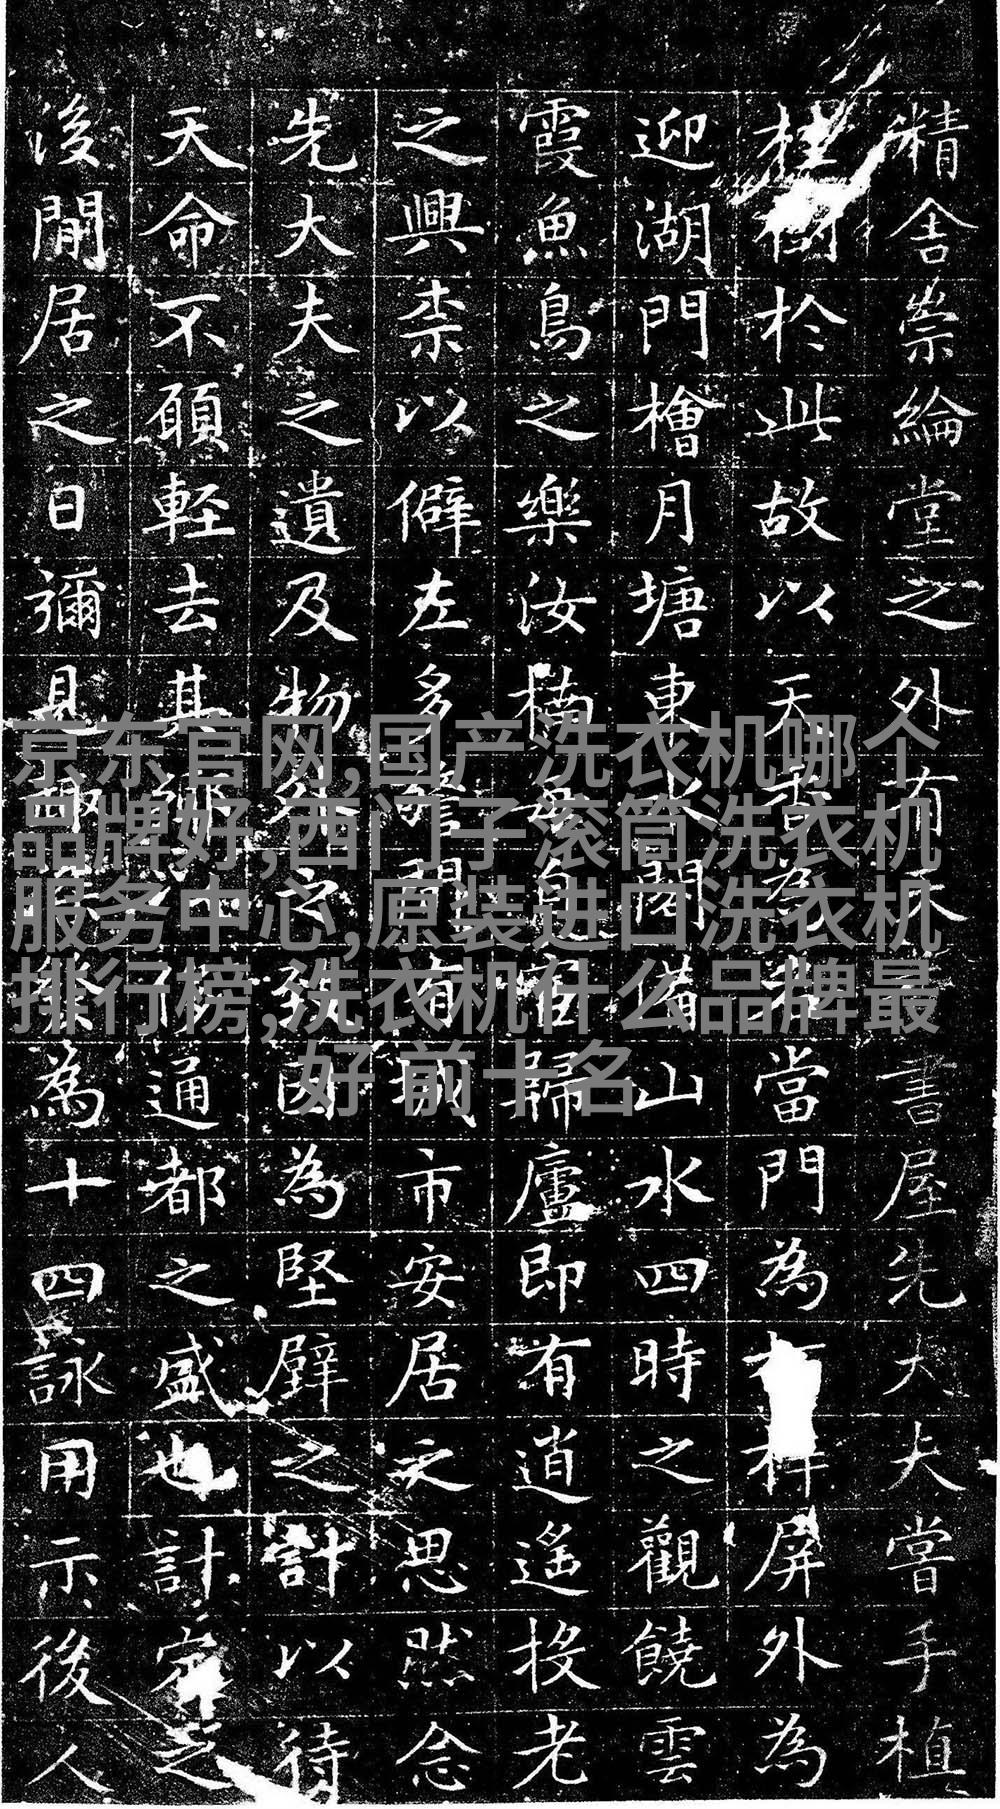 精舍崇綸堂之外有書屋先大夫嘗手植
桂樹於此故以天香為名當門為屏外為
迎湖門檜月塘東水閣備山水四時之觀饒雲
霞魚鳥之樂汝楠每自宦歸廬即有逍遙投老
之興柰以僻左多有城市安居之思然念
先大夫之遺及物外之致因為堅壁之計以待
天命不願輕去其通都之盛也計定之
後閒居之日彌見趣為十四詠用示後人
京东官网,国产洗衣机哪个
品牌好,西门子滚筒洗衣机
服务中心,原装进口洗衣机
排行榜,洗衣机什么品牌最
好 前十名